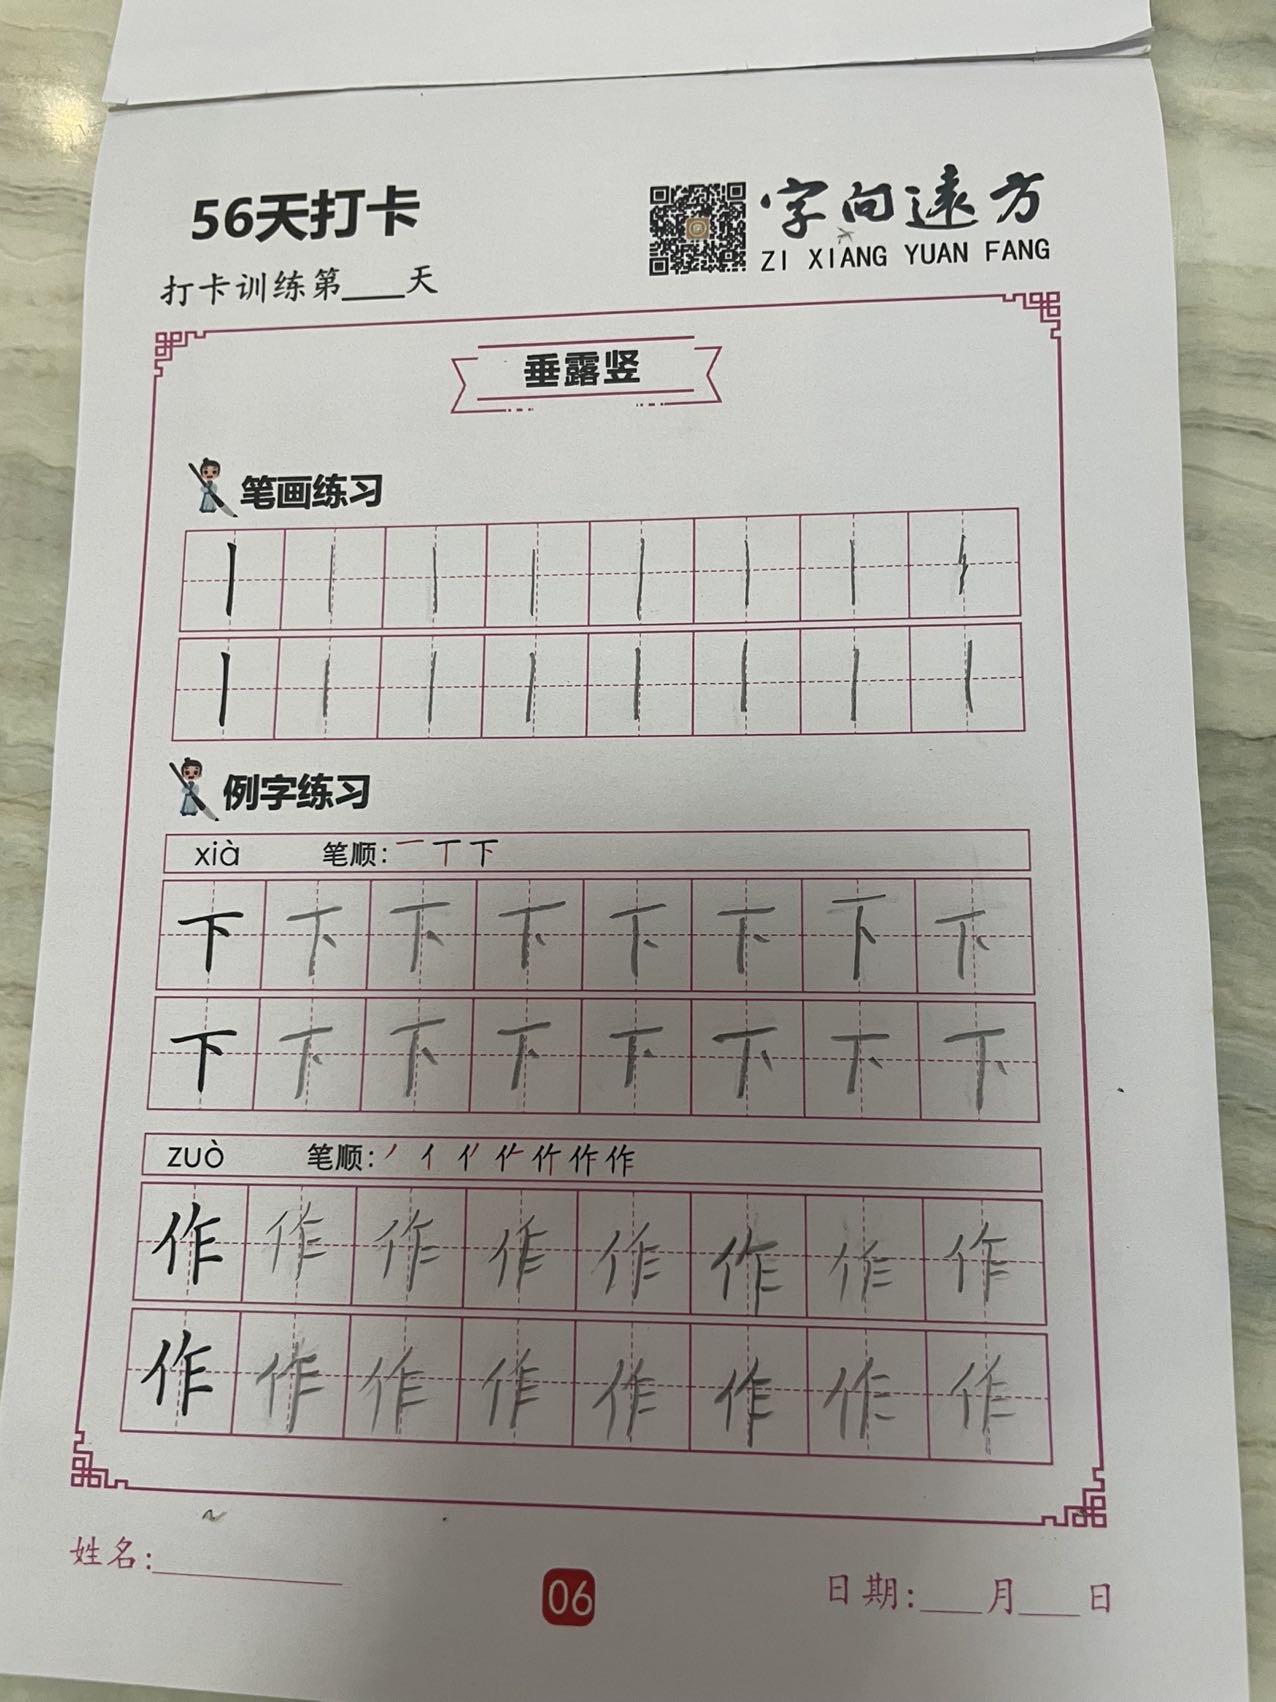 56天打卡
打卡训练第____天
字向远方
ZI XIANG YUAN FANG
垂露竖
笔画练习
丨 丨 丨 丨 丨 丨 丨 丨
丨 丨 丨 丨 丨 丨 丨 丨
例字练习
xià 笔顺: 一 丅 下
下 下 下 下 下 下 下 下
下 下 下 下 下 下 下 下
zuò 笔顺: 作
作 作 作 作 作 作 作 作
作 作 作 作 作 作 作 作
姓名:____________
06
日期:____月____日